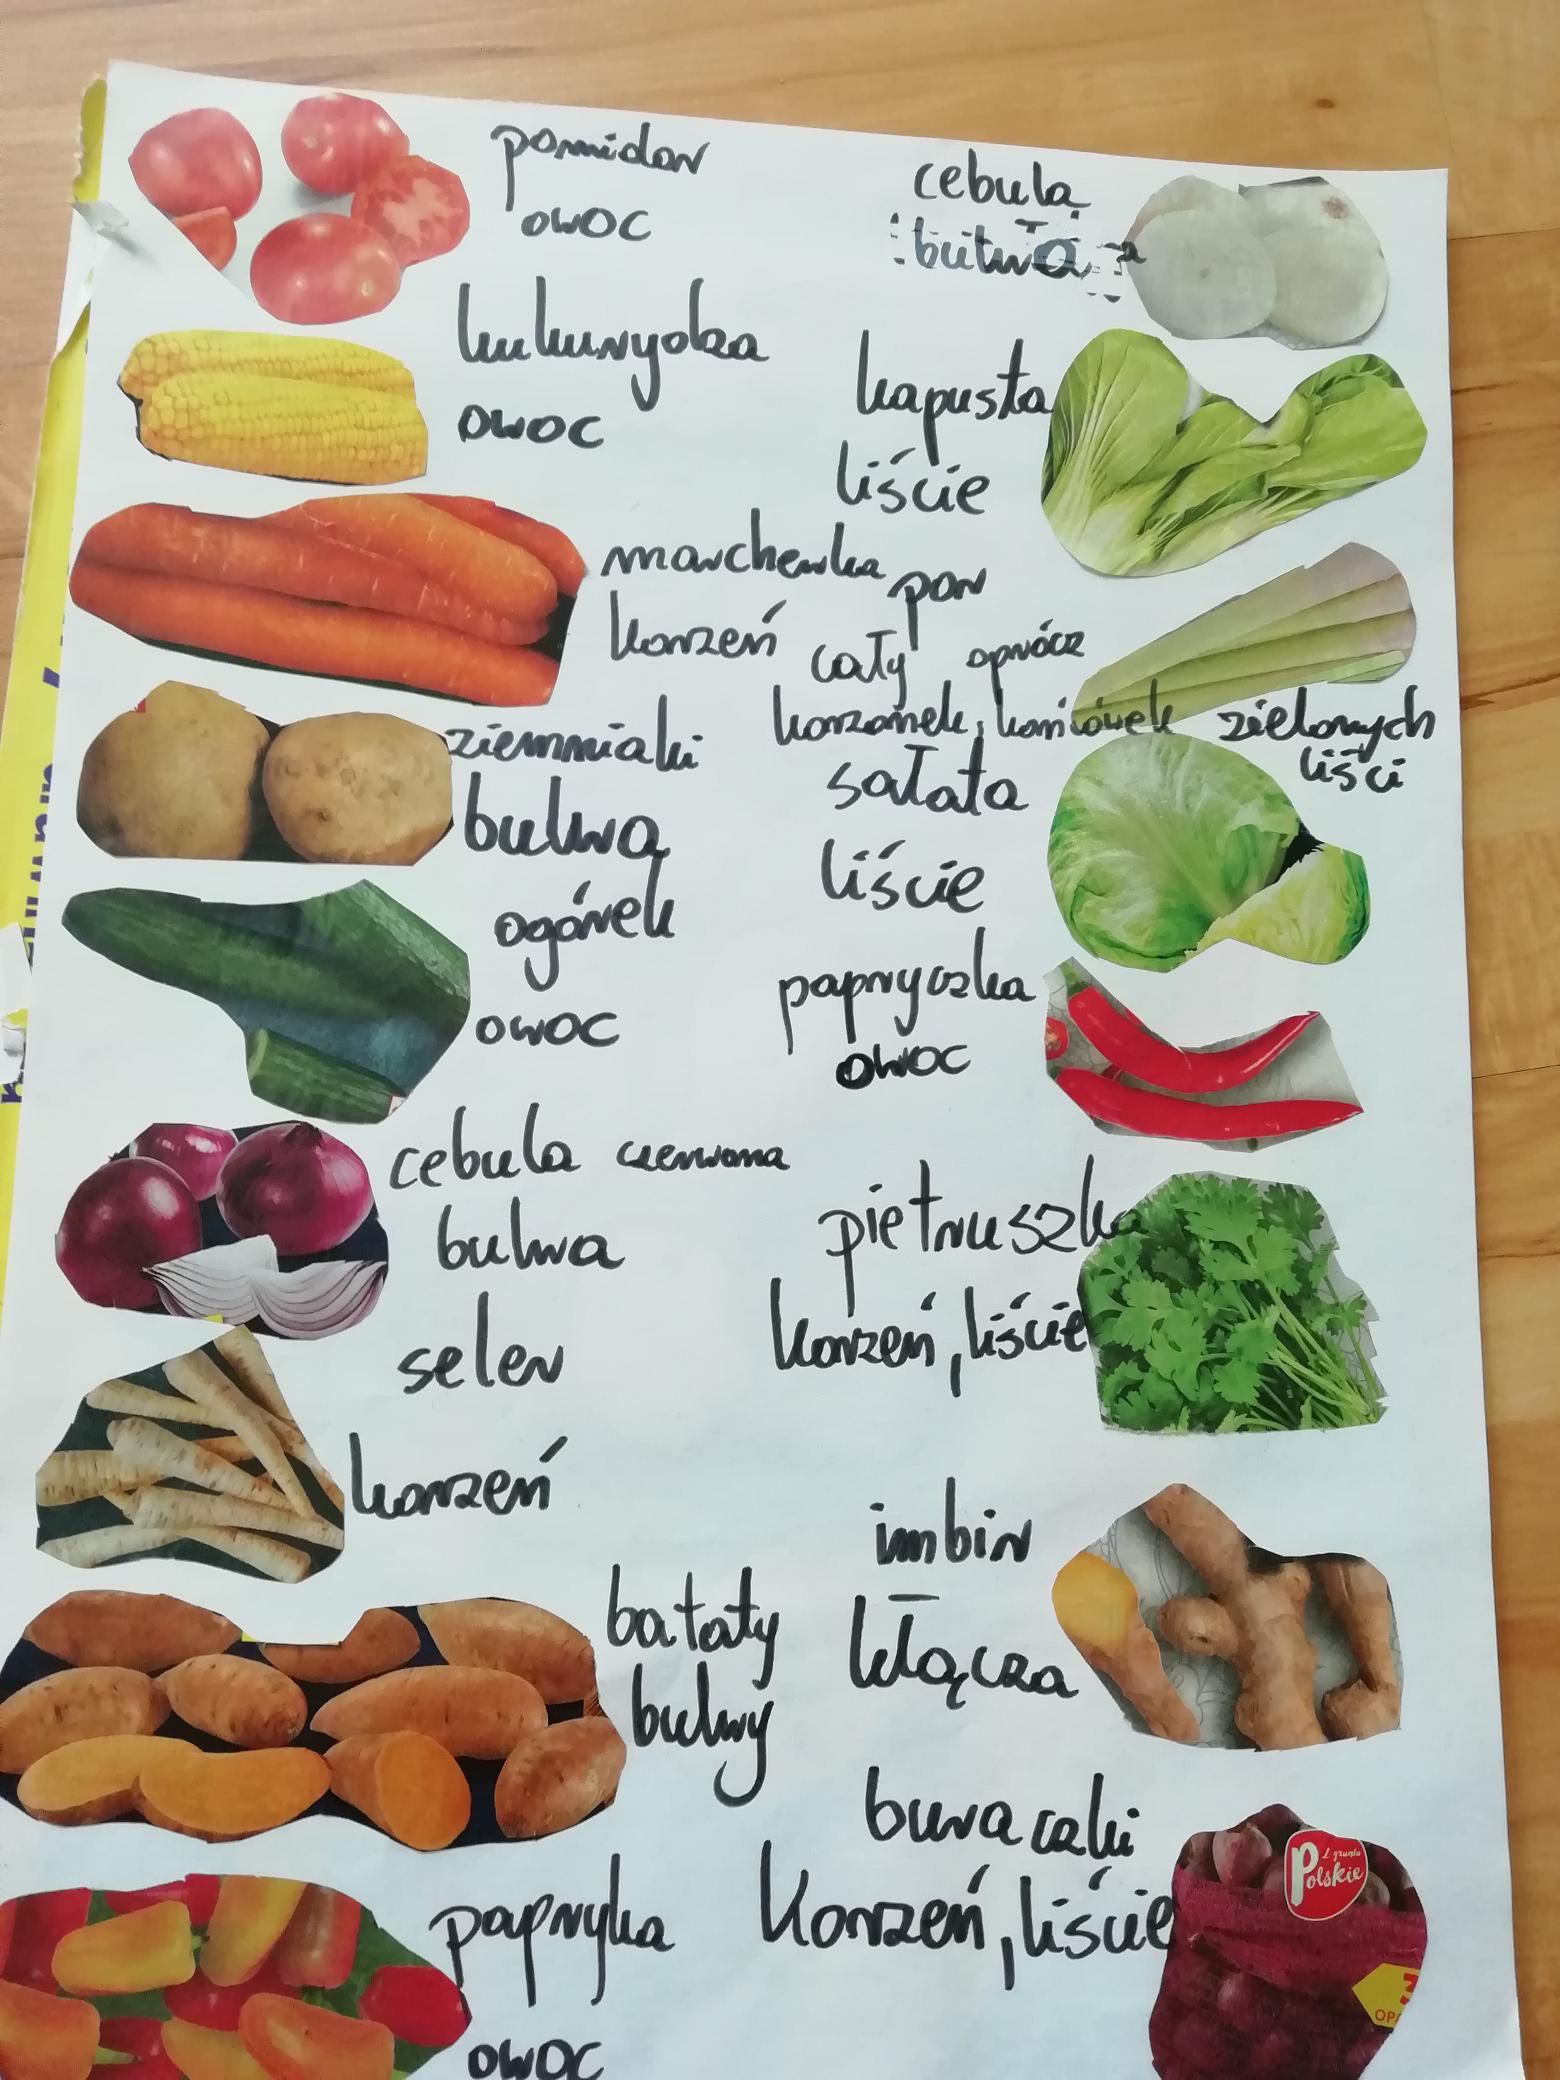 pomidor
owoc
kukurydza
owoc
marchewka
korzeń
ziemniaki
bulwa
ogórek
owoc
cebula czerwona
bulwa
seler
korzeń
bataty
bulwy
papryka
owoc
cebula
bulwa
kapusta
liście
por
cały oprócz
korzonek, końcówek zielonych
liści
sałata
liście
papryczka
owoc
pietruszka
korzeń, liście
imbir
kłącza
buraczki
korzeń, liście
Z gruntu
Polskie
3